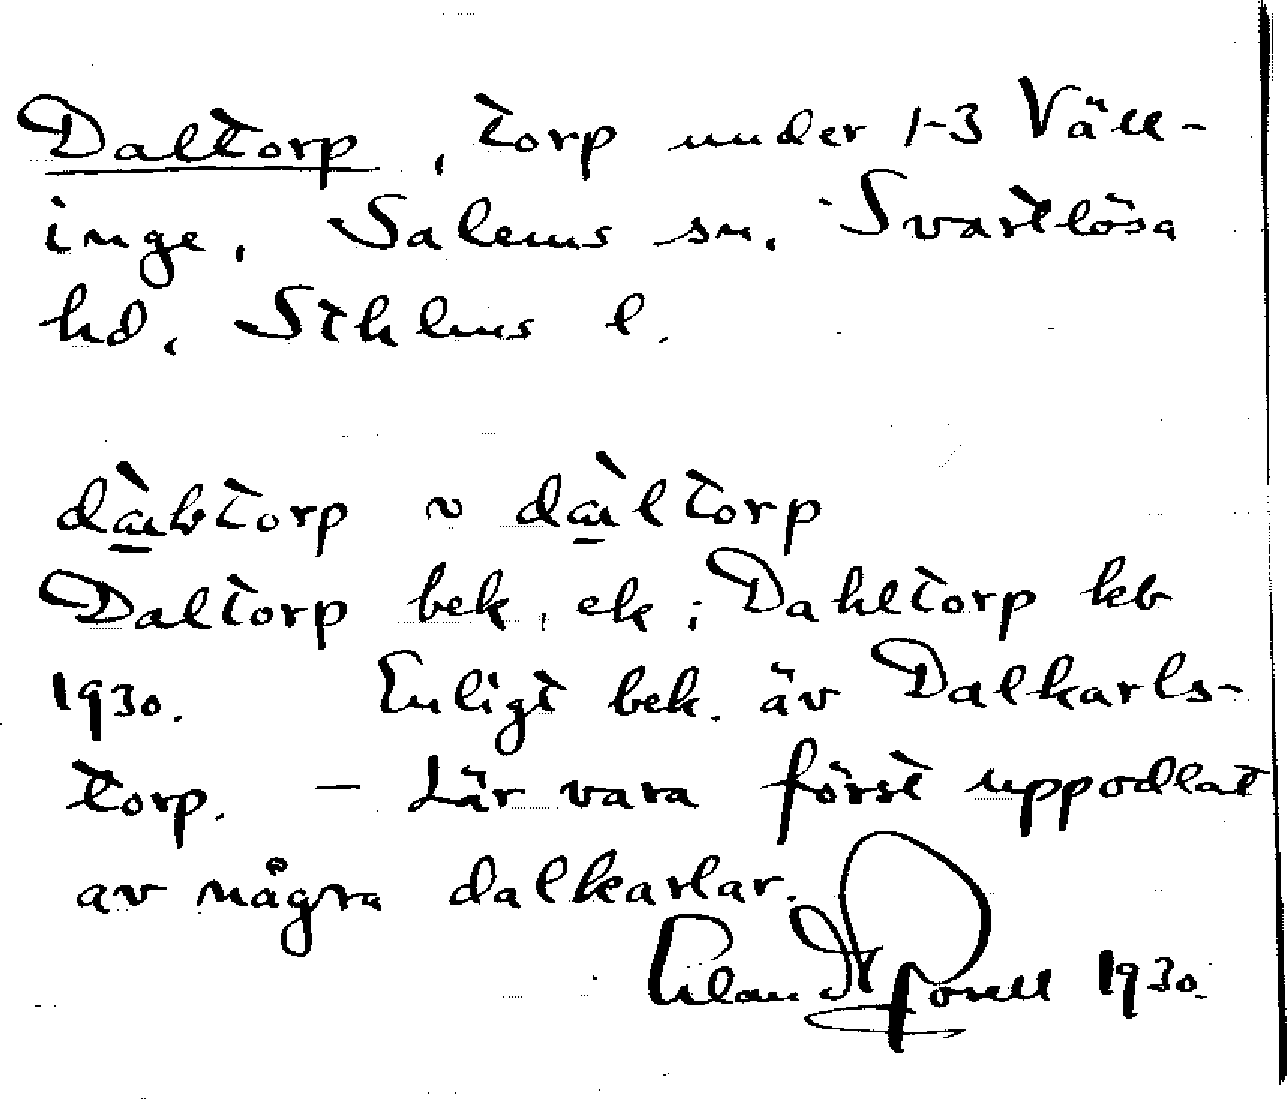 Daltorp, torp under 1-3 Väll-
inge, Salems sn. Svartlösa
hd, Sthlms l.
dàltorp
Daltorp bek, ek; Dahltorp kb
1930. Enligt bek. äv Dalkarls-
torp. — Lär vara först uppodlat
av några dalkarlar.
1930.